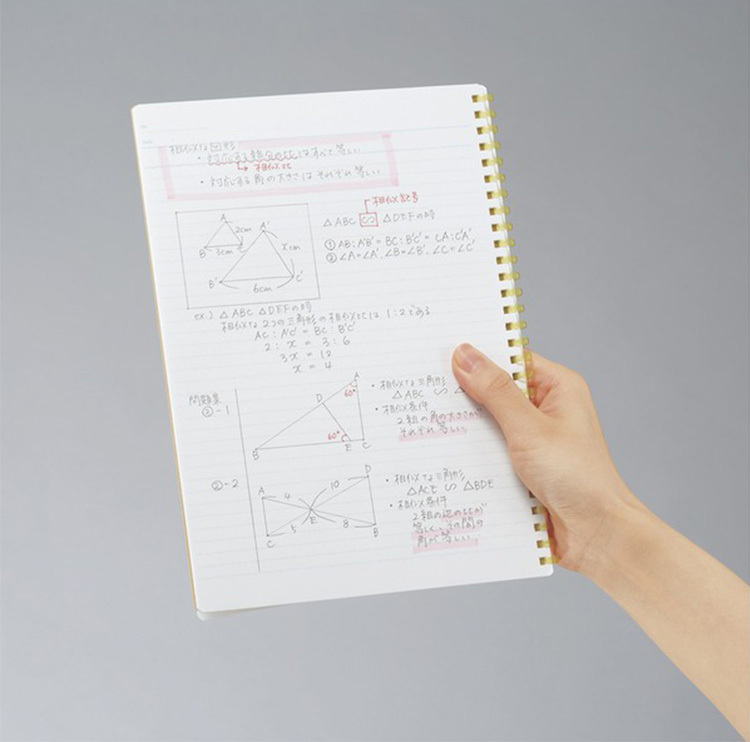 相似な図形
・対応する線分の比はすべて等しい
→相似比
・対応する角の大きさはそれぞれ等しい
A
2cm
B 3cm C
A'
xcm
B' 6cm C'
相似記号
△ABC ∽ △DEFの時
① AB:A'B' = BC:B'C' = CA:C'A'
② ∠A=∠A', ∠B=∠B', ∠C=∠C'
ex.) △ABC △DEFの時
相似な2つの三角形の相似比は1:2である
AC:A'C' = BC:B'C'
2:x = 3:6
3x = 12
x = 4
問題集
②-1
A
60°
D
60°
B E C
・相似な三角形
△ABC ∽ △
・相似条件
2組の角の大きさが
それぞれ等しい
②-2
A 4 10 D
E
C 5 8 B
・相似な三角形
△ACE ∽ △BDE
・相似条件
2組の辺の比が
等しく、その間の
角が等しい